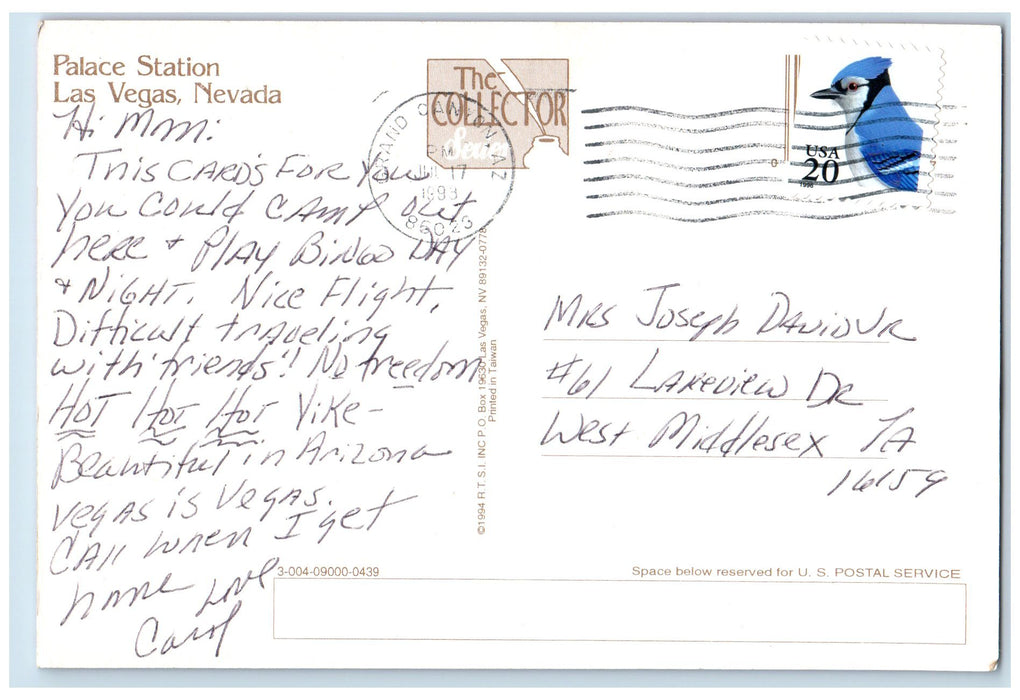 Palace Station
Las Vegas, Nevada
Hi Mom:
This CARD's FOR You
You Could CAMP Out
here + PLAY BiNGO DAY
+ NIGHT. Nice Flight,
Difficult traveling
with 'friends'! No freedom
HOT HOT HOT Yike -
Beautiful in Arizona
Vegas is Vegas.
CAll when I get
home Love
Carol
The
COLLECTOR
Series
GRAND CANYON AZ
PM
JUL 17
86023
USA
20
©1994 R.T.S.I. INC P.O. Box 19630 Las Vegas, NV 89132-0778
Printed in Taiwan
Mrs Joseph David Jr
#61 Lakeview Dr
West Middlesex PA
16159
3-004-09000-0439
Space below reserved for U. S. POSTAL SERVICE